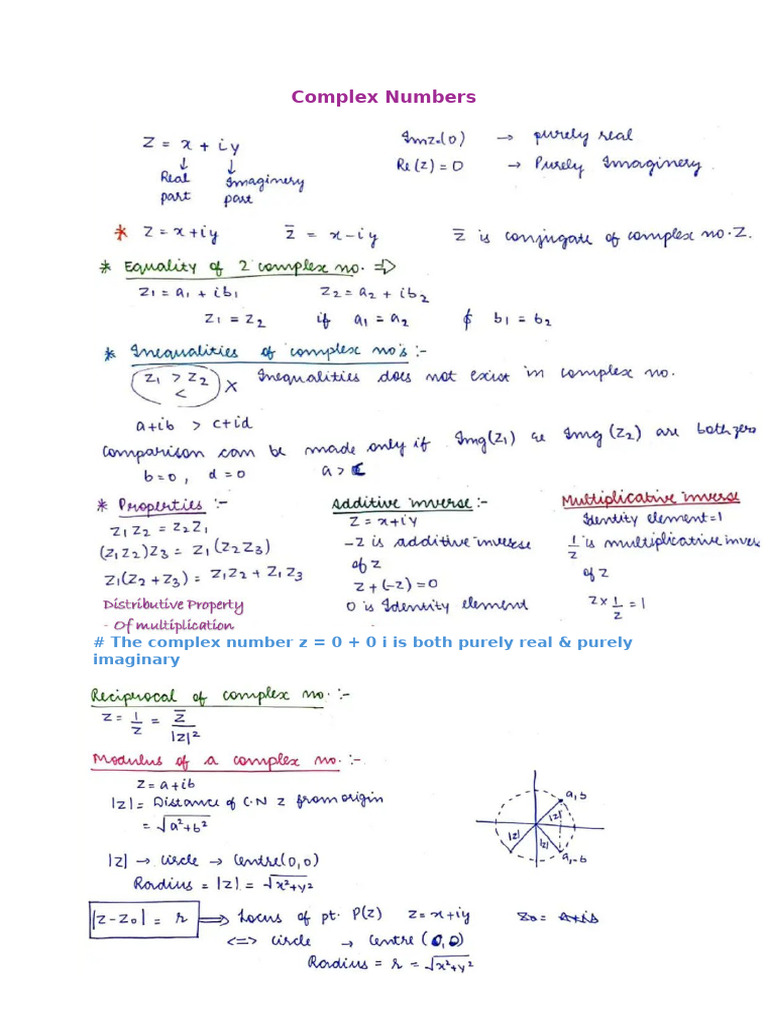 Complex Numbers
Z = x + iy
Real part
Imaginery part
Imz.(0) → purely real
Re(z) = 0 → Purely Imaginery
* Z = x+iy z̅ = x-iy z̅ is conjugate of complex no. Z.
* Equality of 2 complex no. ⇒
Z1 = a1 + ib1 Z2 = a2 + ib2
Z1 = Z2 if a1 = a2 & b1 = b2
* Inequalities of complex no's :-
Z1 > Z2 X Inequalities does not exist in complex no.
<
a+ib > c+id
Comparison can be made only if Img(Z1) & Img(Z2) are both zero
b=0, d=0 a > c
* Properties :-
Z1Z2 = Z2Z1
(Z1Z2)Z3 = Z1(Z2Z3)
Z1(Z2+Z3) = Z1Z2 + Z1Z3
Distributive Property
- Of multiplication
Additive inverse :-
Z = x+iy
-Z is additive inverse
of z
Z + (-Z) = 0
0 is Identity element
Multiplicative inverse
Identity element = 1
1/z is multiplicative inve
of Z
Z x 1/z = 1
# The complex number z = 0 + 0 i is both purely real & purely
imaginary
Reciprocal of complex no. :-
Z = 1/z = z̅/|z|²
Modulus of a complex no. :-
Z = a+ib
|z| = Distance of C.N z from origin
= √a²+b²
a,b
|z|
|z|
|z|
a,-b
|z| → circle → Centre(0,0)
Radius = |z| = √x²+y²
|z-z0| = r ⇒ Locus of pt. P(z) Z = x+iy z0 = a+ib
<=> circle → Centre (0,0)
Radius = r = √x²+y²